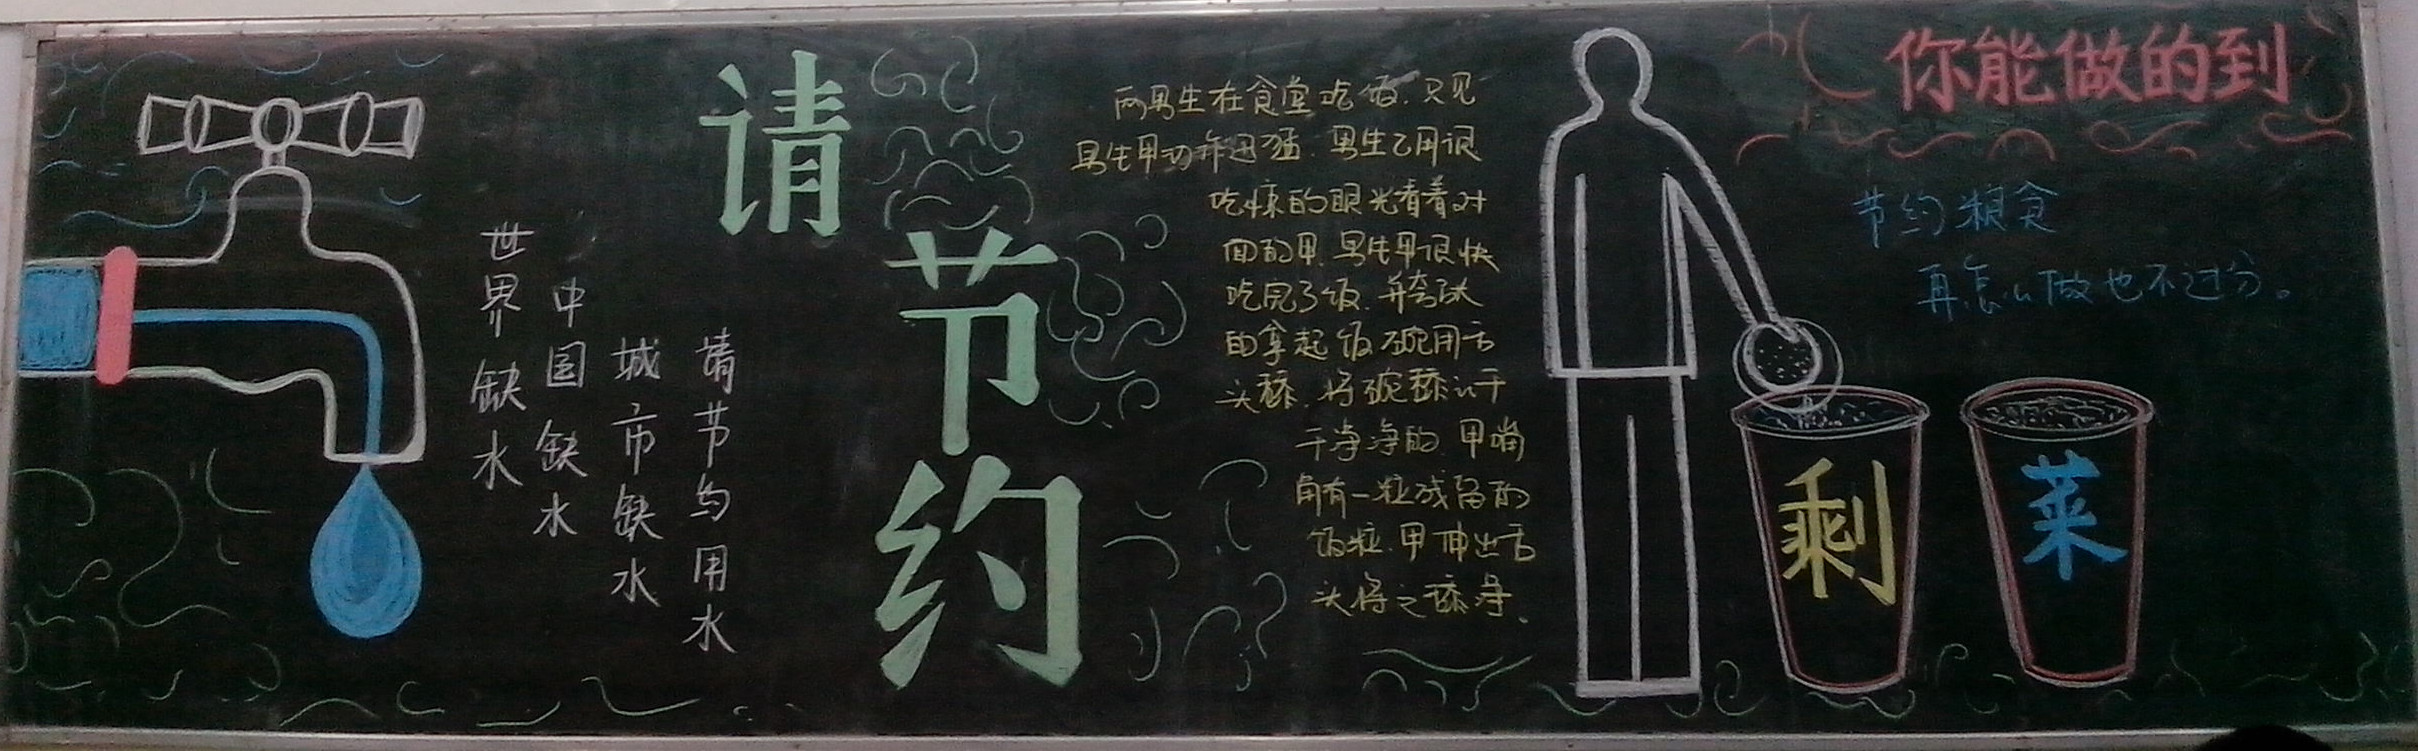 世界缺水
中国缺水
城市缺水
请节约用水
请
节
约
两男生在食堂吃饭.只见
男生甲动作迅猛.男生乙用很
吃惊的眼光看着对
面的甲.男生甲很快
吃完了饭.并夸张
的拿起饭碗用舌
头舔.将碗舔得干
干净净的.甲嘴
角有一粒残留的
饭粒.甲伸出舌
头将之舔净.
你能做的到
节约粮食
再怎么做也不过分。
剩
菜